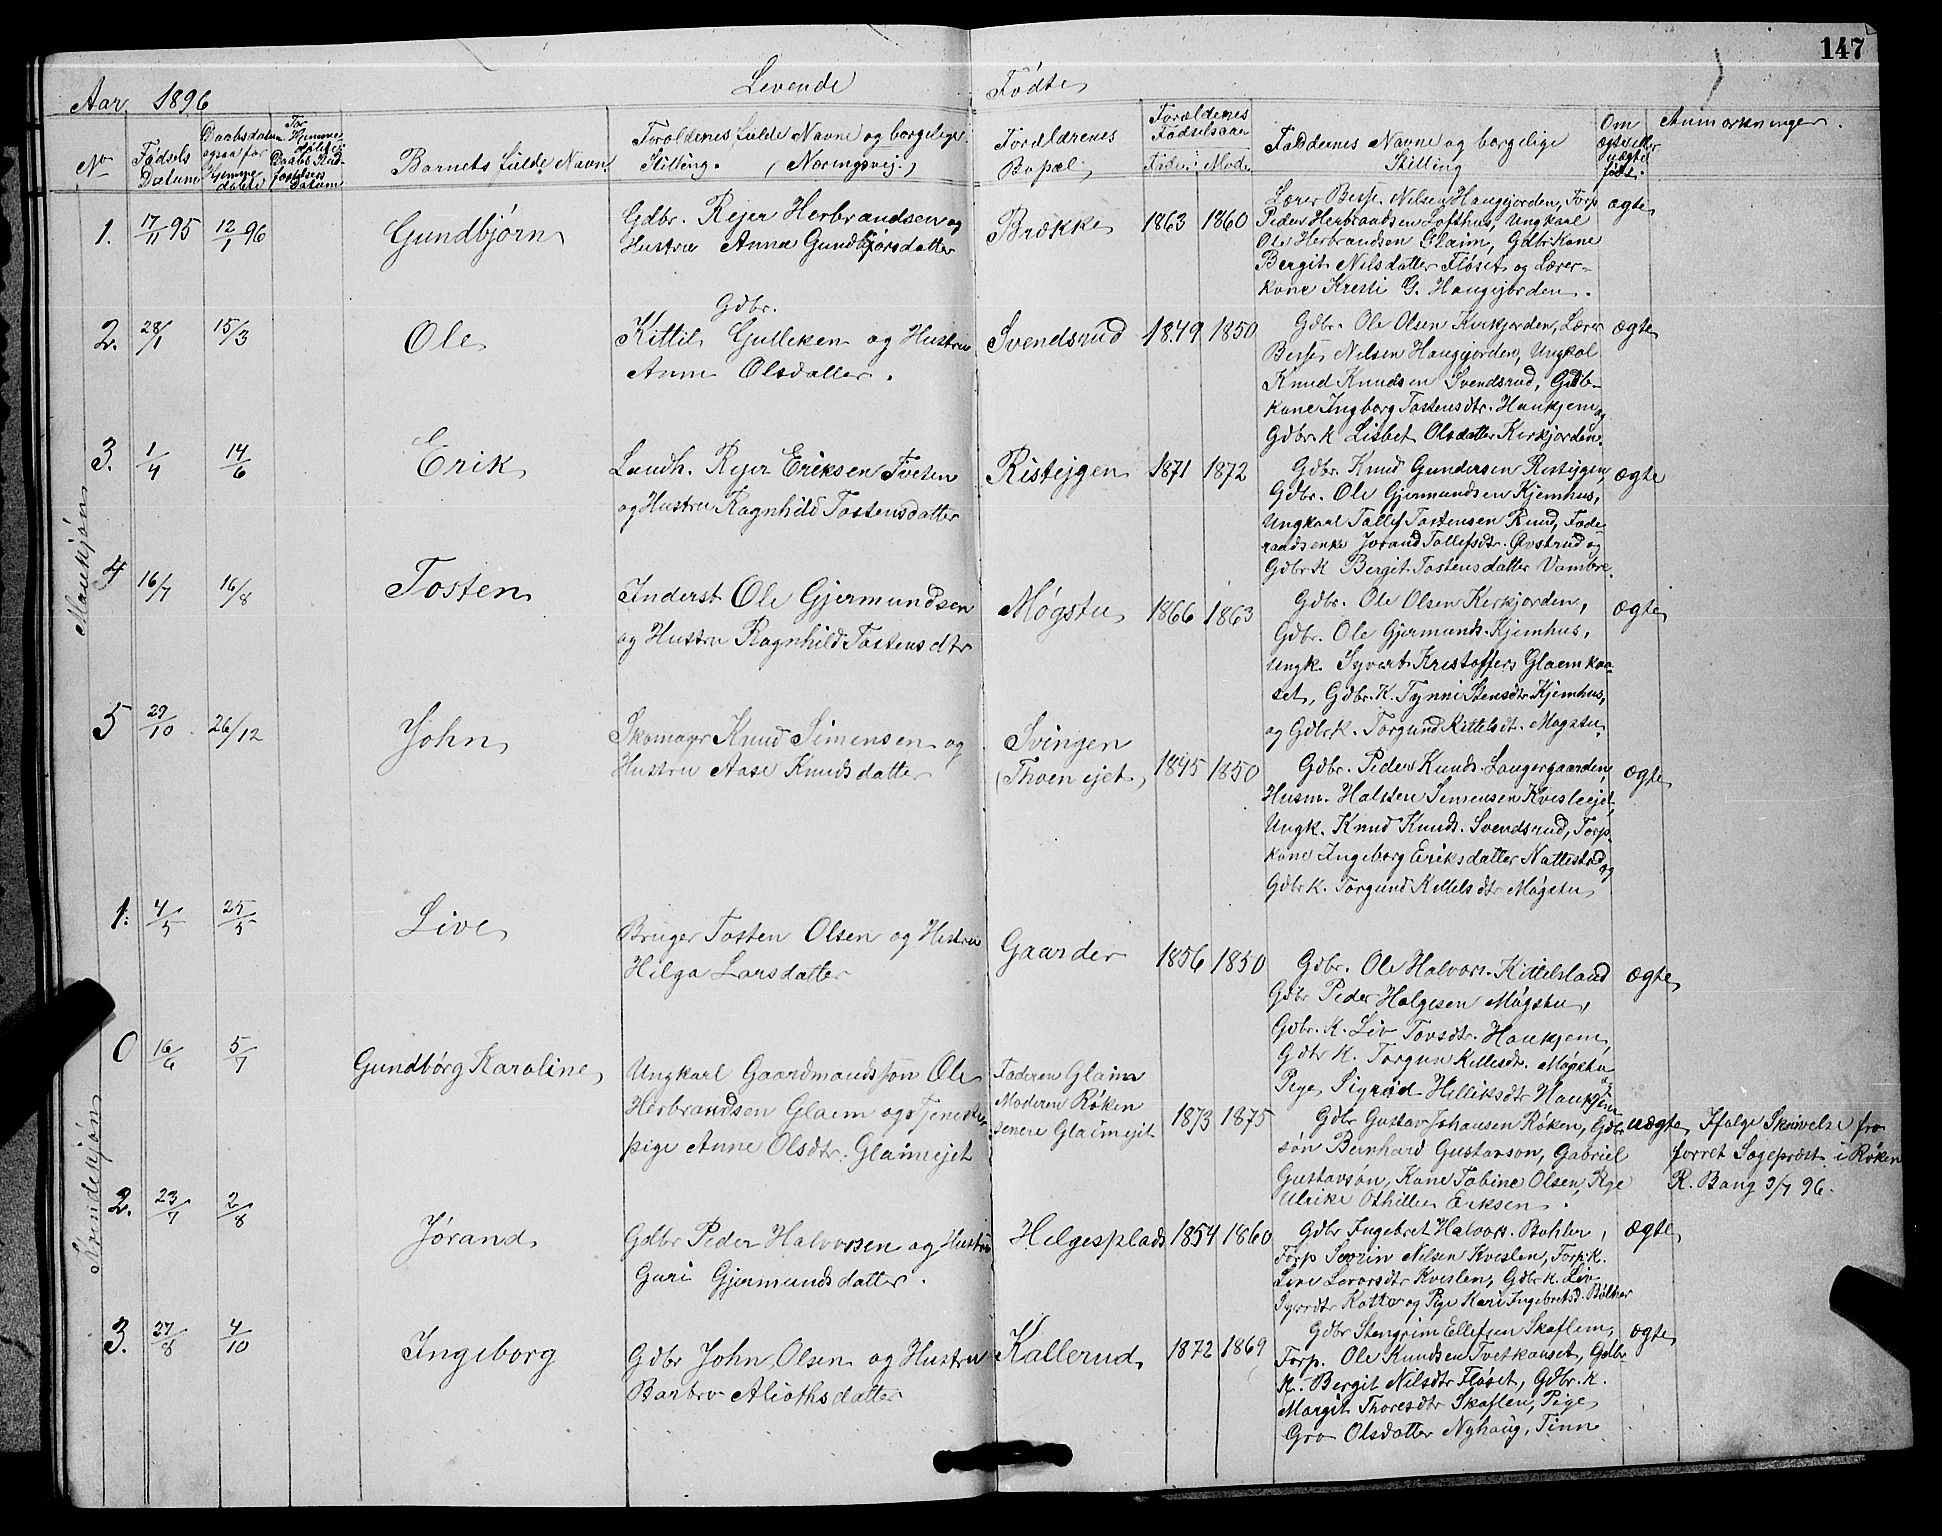 147
Aar 1896
Levende
Fødte
No
Fødsels Datum
Daabsdatum ogsaa for Hjemme døbte
For Hjemme døbte Daabs Stad fæstelses Datum
Barnets fulde Navn
Foroldenes fulde Navne og borgelige Stilling. (Næringsvej.)
Foreldrenes Bopæl
Forældenes Fødselsaar
Fader. Mode.
Faddernes Navne og borgelige Stilling
Om ægte eller uægte født.
Anmærkninger.
Mankjøn
1. 17/11 95 12/1 96 Gundbjørn
Gdbr. Rejer Herbrandsen og
Hustru Anne Gundbjørsdatter
Brække 1863 1860
Lærer Besse Nilsen Haugjorden, Torp
Peder Herbrandsen Lofthus, Ungkarl
Ole Herbrandsen Glaim, Gdbr Kone
Bergit Nilsdatter Fløset og Lærer-
kone Kresti G. Haugjorden.
ægte
2. 28/1 15/3 Ole
Gdbr.
Kittil Gulleksen og Hustru
Anne Olsdatter.
Svendsrud 1849 1850
Gdbr. Ole Olsen Kirkjorden, Lærer
Besse Nilsen Haugjorden, Ungkal
Knud Knudsen Svendsrud, Gdb-
kone Ingborg Tostensdtr. Haukjem og
Gdbr. K Lisbet Olsdatter Kerkjorden.
ægte
3. 1/4 14/6 Erik
Landh. Rejer Eriksen Tveten
og Hustru Ragnhild Tostensdatter
Ristejgen 1871 1872
Gdbr. Knud Gundersen Restejgen,
Gdbr. Ole Gjermundsen Kjemhus,
Ungkarl Tollef Tostensen Ruud, Føde-
raadsenke Jorand Tollefsdtr. Øvstrud og
Gdbr K Bergit Tostensdatter Vambre.
ægte
4 16/7 16/8 Tosten
Inderst Ole Gjermundsen
og Hustru Ragnhild Tostensdtr
Møgstu 1866 1863
Gdbr. Ole Olsen Kerkjorden,
Gdbr. Ole Gjermunds. Kjemhus,
Ungk. Syvert Kristoffers Glaemkaa-
set, Gdbr. K. Tynni Stensdtr Kjemhus,
og Gdbr k. Torgund Kittelsdt. Møgstu.
ægte
5 29/10 26/12 John
Skomager Knud Simensen og
Hustru Aase Knudsdatter
Svingen
(Thoen ejet) 1845 1850
Gdbr. Peder Knuds. Langergaarden,
Husm. Halsten Simensen Kvesleejet,
Ungk. Knud Knuds. Svendsrud, Torp.
kone Ingeborg Eriksdatter Nattestad og
Gdbr K. Torgund Kittelsdtr Møgstu
ægte
Kvindekjøn
1. 4/5 25/5 Live
Bruger Tosten Olsen og Hustru
Helga Larsdatter
Gaarder 1856 1850
Gdbr. Ole Halvors. Kittelsland
Gdbr Peder Helgesen Møgstu,
Gdbr. K. Liv Tovsdtr. Haukjem,
Gdbr K. Torgun Kittlsdtr. Møgstu og
Pige Sigrid Helliksdtr Haukjem
ægte
0 16/6 5/7 Gundbørg Karoline
Ungkarl Gaardmandssøn Ole
Herbrandsen Glaim og Tjeneste-
pige Anne Olsdtr. Glaimejet
Faderen Glaim
Moderen Røken
senere Glaimejet 1873 1875
Gdbr Gustav Johansen Røken, Gdbr
søn Bernhard Gustavson, Gabriel
Gustavsøn, Kone Tobine Olsen, Pige
Ulrike Othillie Eriksen.
uægte
Ifølge Skrivelse fra
forret Sogeprest i Røken
R. Bang 3/7 96.
2. 23/7 2/8 Jørand
Gdbr Peder Halvorsen og Hustru
Guri Gjermundsdatter.
Helgesplads 1854 1860
Gdbr Ingebret Halvors. Bøhler,
Torp Sevrin Nilsen Kveslen, Torp. K.
Live Levorsdtr Kveslen, Gdbr K. Liv
Syverdtr Katte og Pige Kari Ingebretsd. Bølher
ægte
3. 27/8 4/10 Ingeborg
Gdbr John Olsen og Hustru
Barbro Aliothsdatter
Kallerud 1872 1869
Gdbr Stengrim Ellefsen Skaflem,
Torp. Ole Knudsen Tvetkaaset, Gdbr
K. Bergit Nilsdtr Fløset, Gdbr. K.
Margit Thoresdtr Skaflen, Pige
Gro Olsdatter Nyhaug, Tinn
ægte